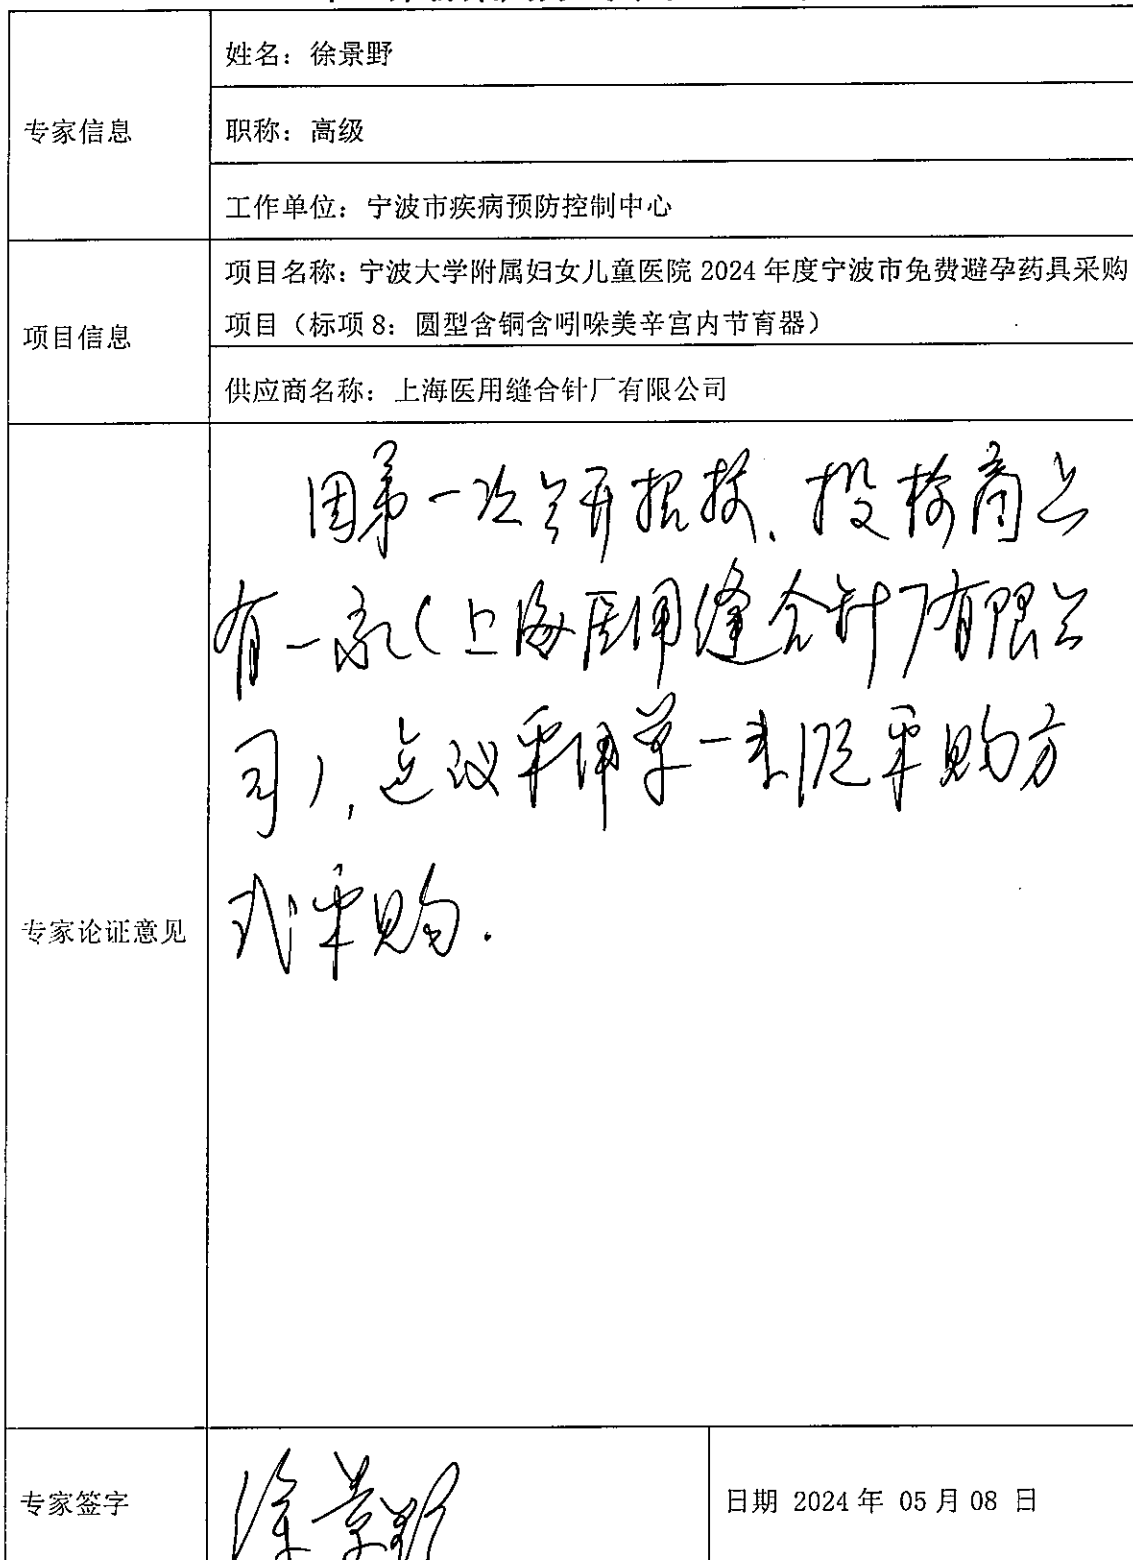 专家信息
姓名：徐景野
职称：高级
工作单位：宁波市疾病预防控制中心
项目信息
项目名称：宁波大学附属妇女儿童医院 2024 年度宁波市免费避孕药具采购
项目（标项 8：圆型含铜含吲哚美辛宫内节育器）
供应商名称：上海医用缝合针厂有限公司
专家论证意见
因第一次公开招标，投标商只
有一家（上海医用缝合针厂有限公
司），建议采用单一来源采购方
式采购．
专家签字
徐景野
日期 2024 年 05 月 08 日